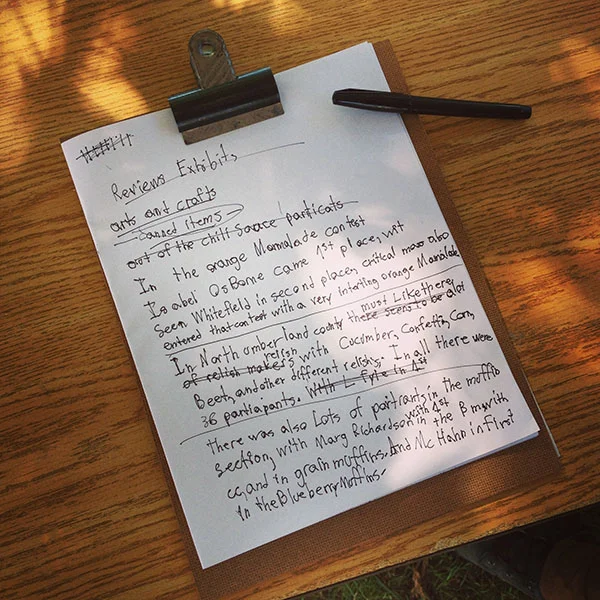 Reviews Exhibits
arts and crafts
canned items
out of the chili sauce particats
In the orange Marmalade contest
Isabel OsBorne came 1st place, wit
Seen Whitefield in second place, critical mass also
entered that contest with a very interting orange Mamalade
In North umberland county there seems to be alot
must Like there
of relish makers with Cocumber, Confetti, Corn,
relish
Beet, and other different relishs. In all there were
36 partiapants. with L Fyfe in 1st
there was also Lots of portrants in the moffin
section, with Marg Richardson in the B m with
with 1st
cc, and in grain muffins. And Mc Hahn in First
in the Blueberry Moffins.